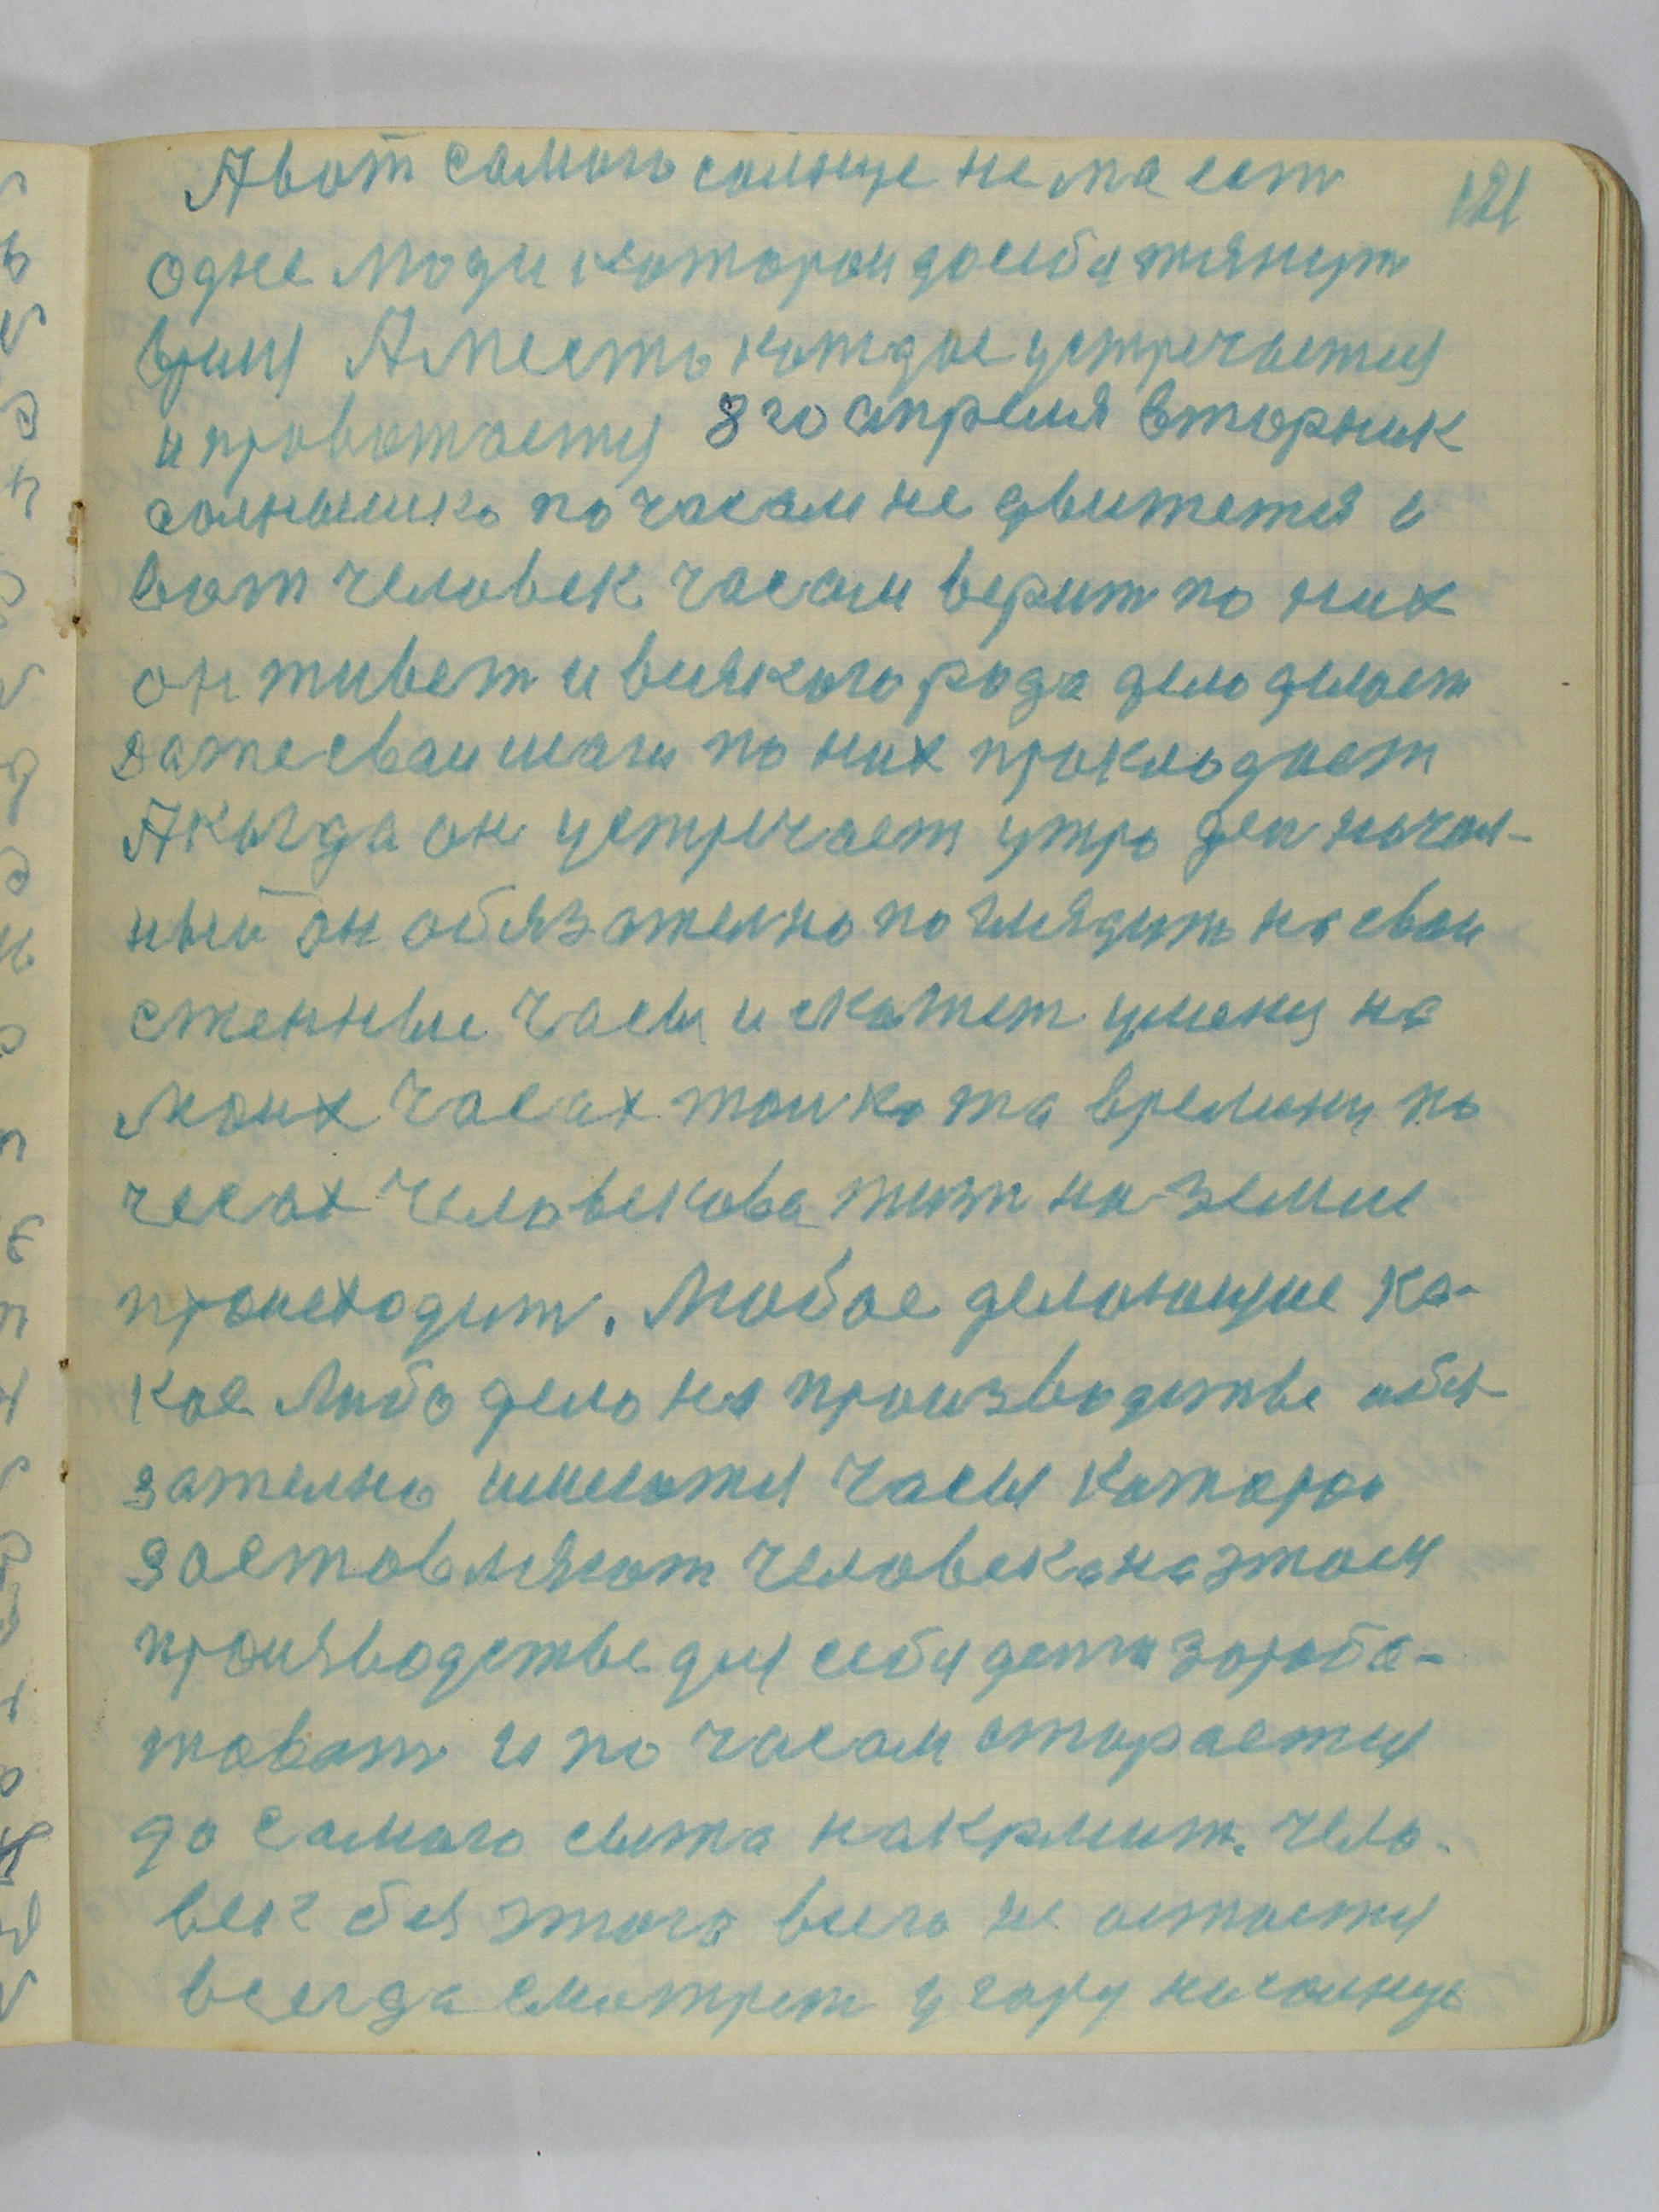 121
А вот самого солнце нема есть
одне люди которои до себя тянут
А месть каждое устречается
и провожается 8 го апреля вторник
солнышко по часам не движется а
вот человек часам верит по них
он живет и всякого рода дело делает
даже сваи шаги по них прокладает
А когда он устречает утро ден начал-
ный он обязателно поглядить на сваи
стенные часы и скажет уменя на
моих часах толко та времину по
часах человекова жизн на земле
происходит. Любое делающие ка-
кое либо дело на производстве обя-
зателно имеются часы которои
заставляют человека на этом
производстве для себя денги зароба-
товат и по часам старается
до самого сыта накрмит. Чело-
век без этого всего не остается
всегда смотрит у гору на солнце